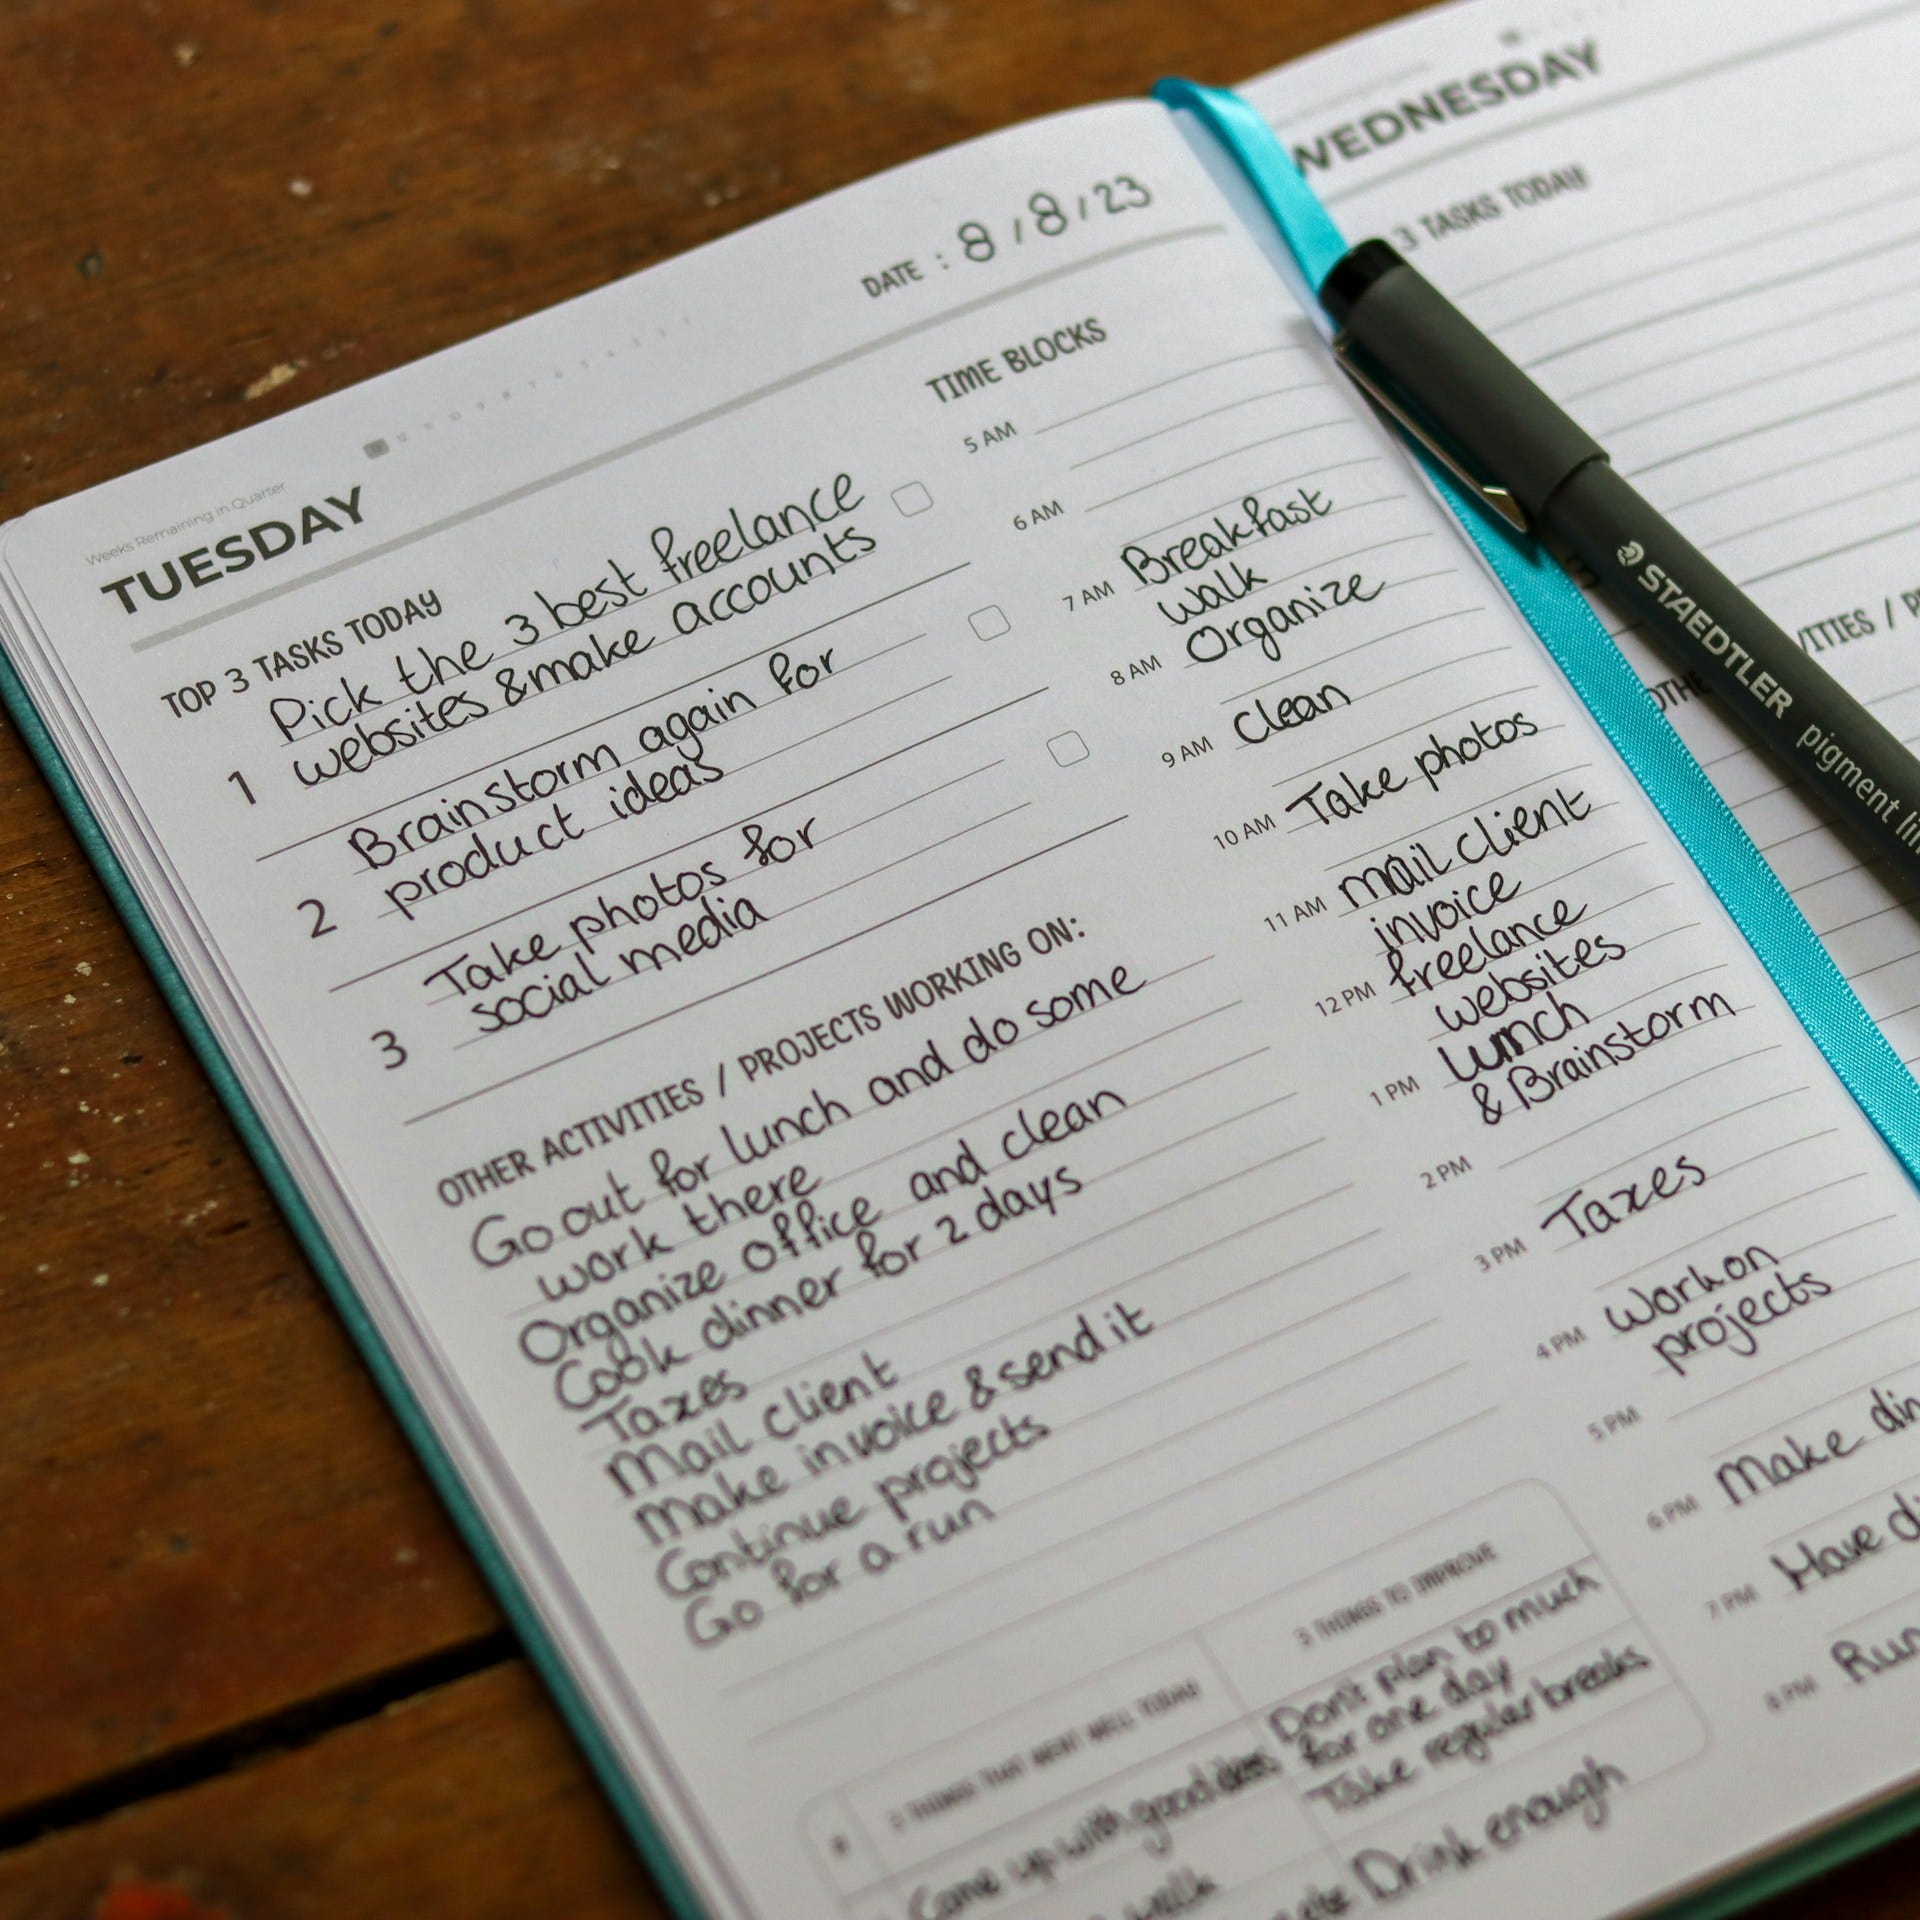 Weeks Remaining in Quarter
TUESDAY
DATE : 8 / 8 / 23
TOP 3 TASKS TODAY
1 Pick the 3 best freelance
websites & make accounts
2 Brainstorm again for
product ideas
3 Take photos for
social media
OTHER ACTIVITIES / PROJECTS WORKING ON:
Go out for lunch and do some
work there
Organize office and clean
Cook dinner for 2 days
Taxes
Mail client
Make invoice & send it
Continue projects
Go for a run
TIME BLOCKS
5 AM
6 AM
7 AM Breakfast
walk
8 AM Organize
9 AM Clean
10 AM Take photos
11 AM Mail client
invoice
12 PM freelance
websites
1 PM Lunch
& Brainstorm
2 PM
3 PM Taxes
4 PM Work on
projects
5 PM
6 PM Make din
7 PM Have di
8 PM Run
3 THINGS THAT WENT WELL TODAY
Came up with good ideas
walk
3 THINGS TO IMPROVE
Don't plan to much
for one day
Take regular breaks
Drink enough
WEDNESDAY
3 TASKS TODAY
OTHE
VITIES / P
STAEDTLER pigment lin